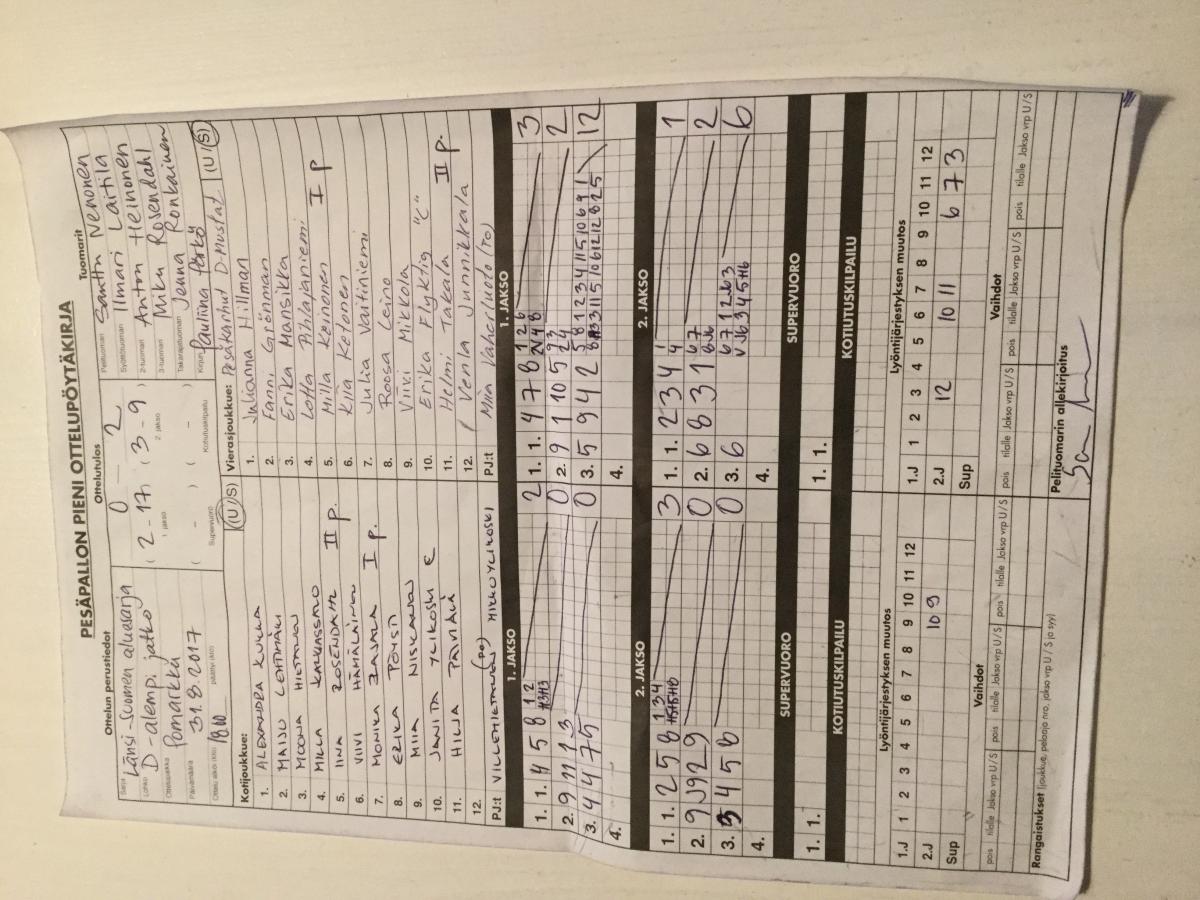 PESÄPALLON PIENI OTTELUPÖYTÄKIRJA
Ottelun perustiedot
Sarja Länsi-Suomen aluesarja
Lohko D-alemp. jatko
Ottelupaikka Pomarkku
Päivämäärä 31.8.2017
Ottelu alkoi (klo) 18.00 päättyi (klo)
Ottelutulos
0 - 2
( 2 - 17 ) ( 3 - 9 )
1. jakso 2. jakso
( - ) ( - )
Supervuoro Kotiutuskilpailu
Tuomarit
Pelituomari Santtu Nenonen
Syöttötuomari Ilmari Laitila
2-tuomari Anton Heinonen
3-tuomari Mika Rosendahl
Takarajatuomari Jenna Ronkainen
Kirjuri Pauliina Pörkö
Kotijoukkue: (U/S)
1. ALEXANDRA KUKKA
2. MAIJU LEHTIMÄKI
3. MOONA HIETANEN
4. MILLA KALKASSALO
5. IINA ROSENDAHL II p.
6. VIIVI HÄMÄLÄINEN
7. MONIKA RAJALA I p.
8. ERIKA PÖYSTI
9. MIIA NISKANEN
10. JANITA YLIKOSKI C
11. HILJA PAVIALA
12.
PJ:t VILLE HIETANEN (PO) MIKKO YLIKOSKI
Vierasjoukkue: Pesäkarhut D Mustat (U/S)
1. Julianna Hillman
2. Fanni Grönman
3. Erika Mansikka
4. Lotta Pihlajaniemi
5. Mila Keinonen I p
6. Kiia Ketonen
7. Julia Vaitiniemi
8. Roosa Leino
9. Viivi Mikkola
10. Erika Flyktig "C"
11. Helmi Takala II p.
12. Venla Junnikkala
PJ:t Miia Vaherluoto (PO)
1. JAKSO
1. 1. 4 5 8 1 2 2
2. 9 11 1 3 0
3. 4 4 7 5 0
4.
1. JAKSO
1. 1. 4 7 8 1 2 6 3
2. 9 1 10 5 9 3 2
3. 5 9 4 2 12
4.
2. JAKSO
1. 1. 2 5 8 1 3 4 3
2. 9 J 9 2 9 0
3. 3 4 5 8 0
4.
2. JAKSO
1. 1. 2 3 4 1
2. 6 8 3 1 6 7 2
3. 6 6 7 12 6 3 6
4.
SUPERVUORO
1. 1.
SUPERVUORO
1. 1.
KOTIUTUSKILPAILU
KOTIUTUSKILPAILU
Lyöntijärjestyksen muutos
1.J 1 2 3 4 5 6 7 8 9 10 11 12
2.J 10 9
Sup
Lyöntijärjestyksen muutos
1.J 1 2 3 4 5 6 7 8 9 10 11 12
2.J 12 10 11 6 7 3
Sup
Vaihdot
pois tilalle Jakso vrp U/S pois tilalle Jakso vrp U/S pois tilalle Jakso vrp U/S
Vaihdot
pois tilalle Jakso vrp U/S pois tilalle Jakso vrp U/S pois tilalle Jakso vrp U/S
Rangaistukset (joukkue, pelaaja nro, jakso vrp U/S ja syy)
Pelituomarin allekirjoitus